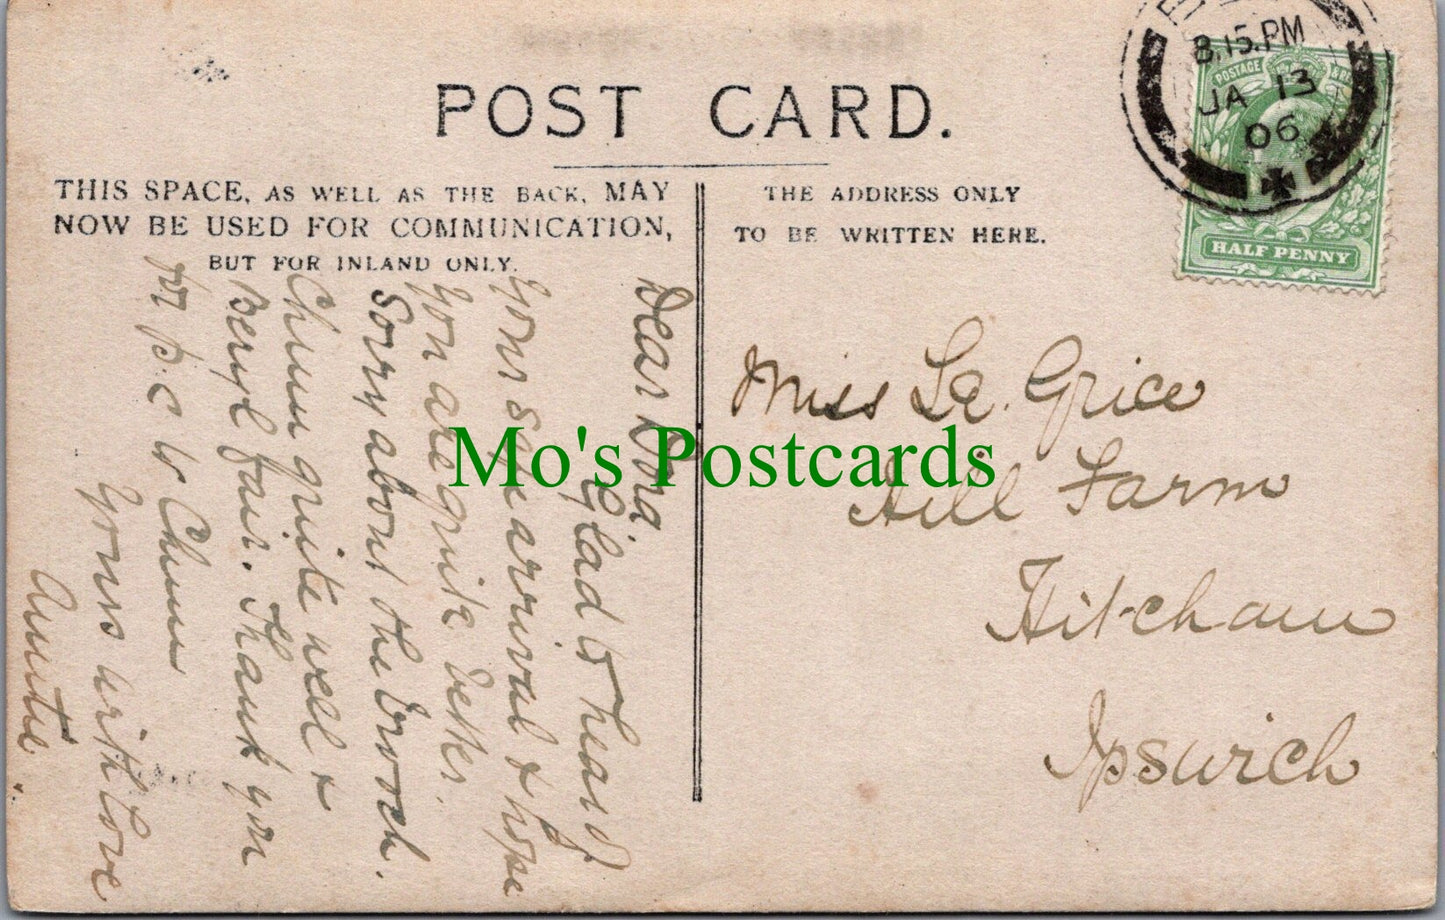 POST CARD.
THIS SPACE, AS WELL AS THE BACK, MAY
NOW BE USED FOR COMMUNICATION,
BUT FOR INLAND ONLY.
THE ADDRESS ONLY
TO BE WRITTEN HERE.
8.15.PM
JA 13
06
POSTAGE
HALF PENNY
Miss Le. Grice
Hill Farm
Hitcham
Ipswich
Dear
Glad to hear of
your safe arrival & hope
you are quite better.
Sorry about the brooch.
Chum quite well &
Beryl fair. Thank you
for p.c to Chum
Yours with love
Auntie.
Mo's Postcards